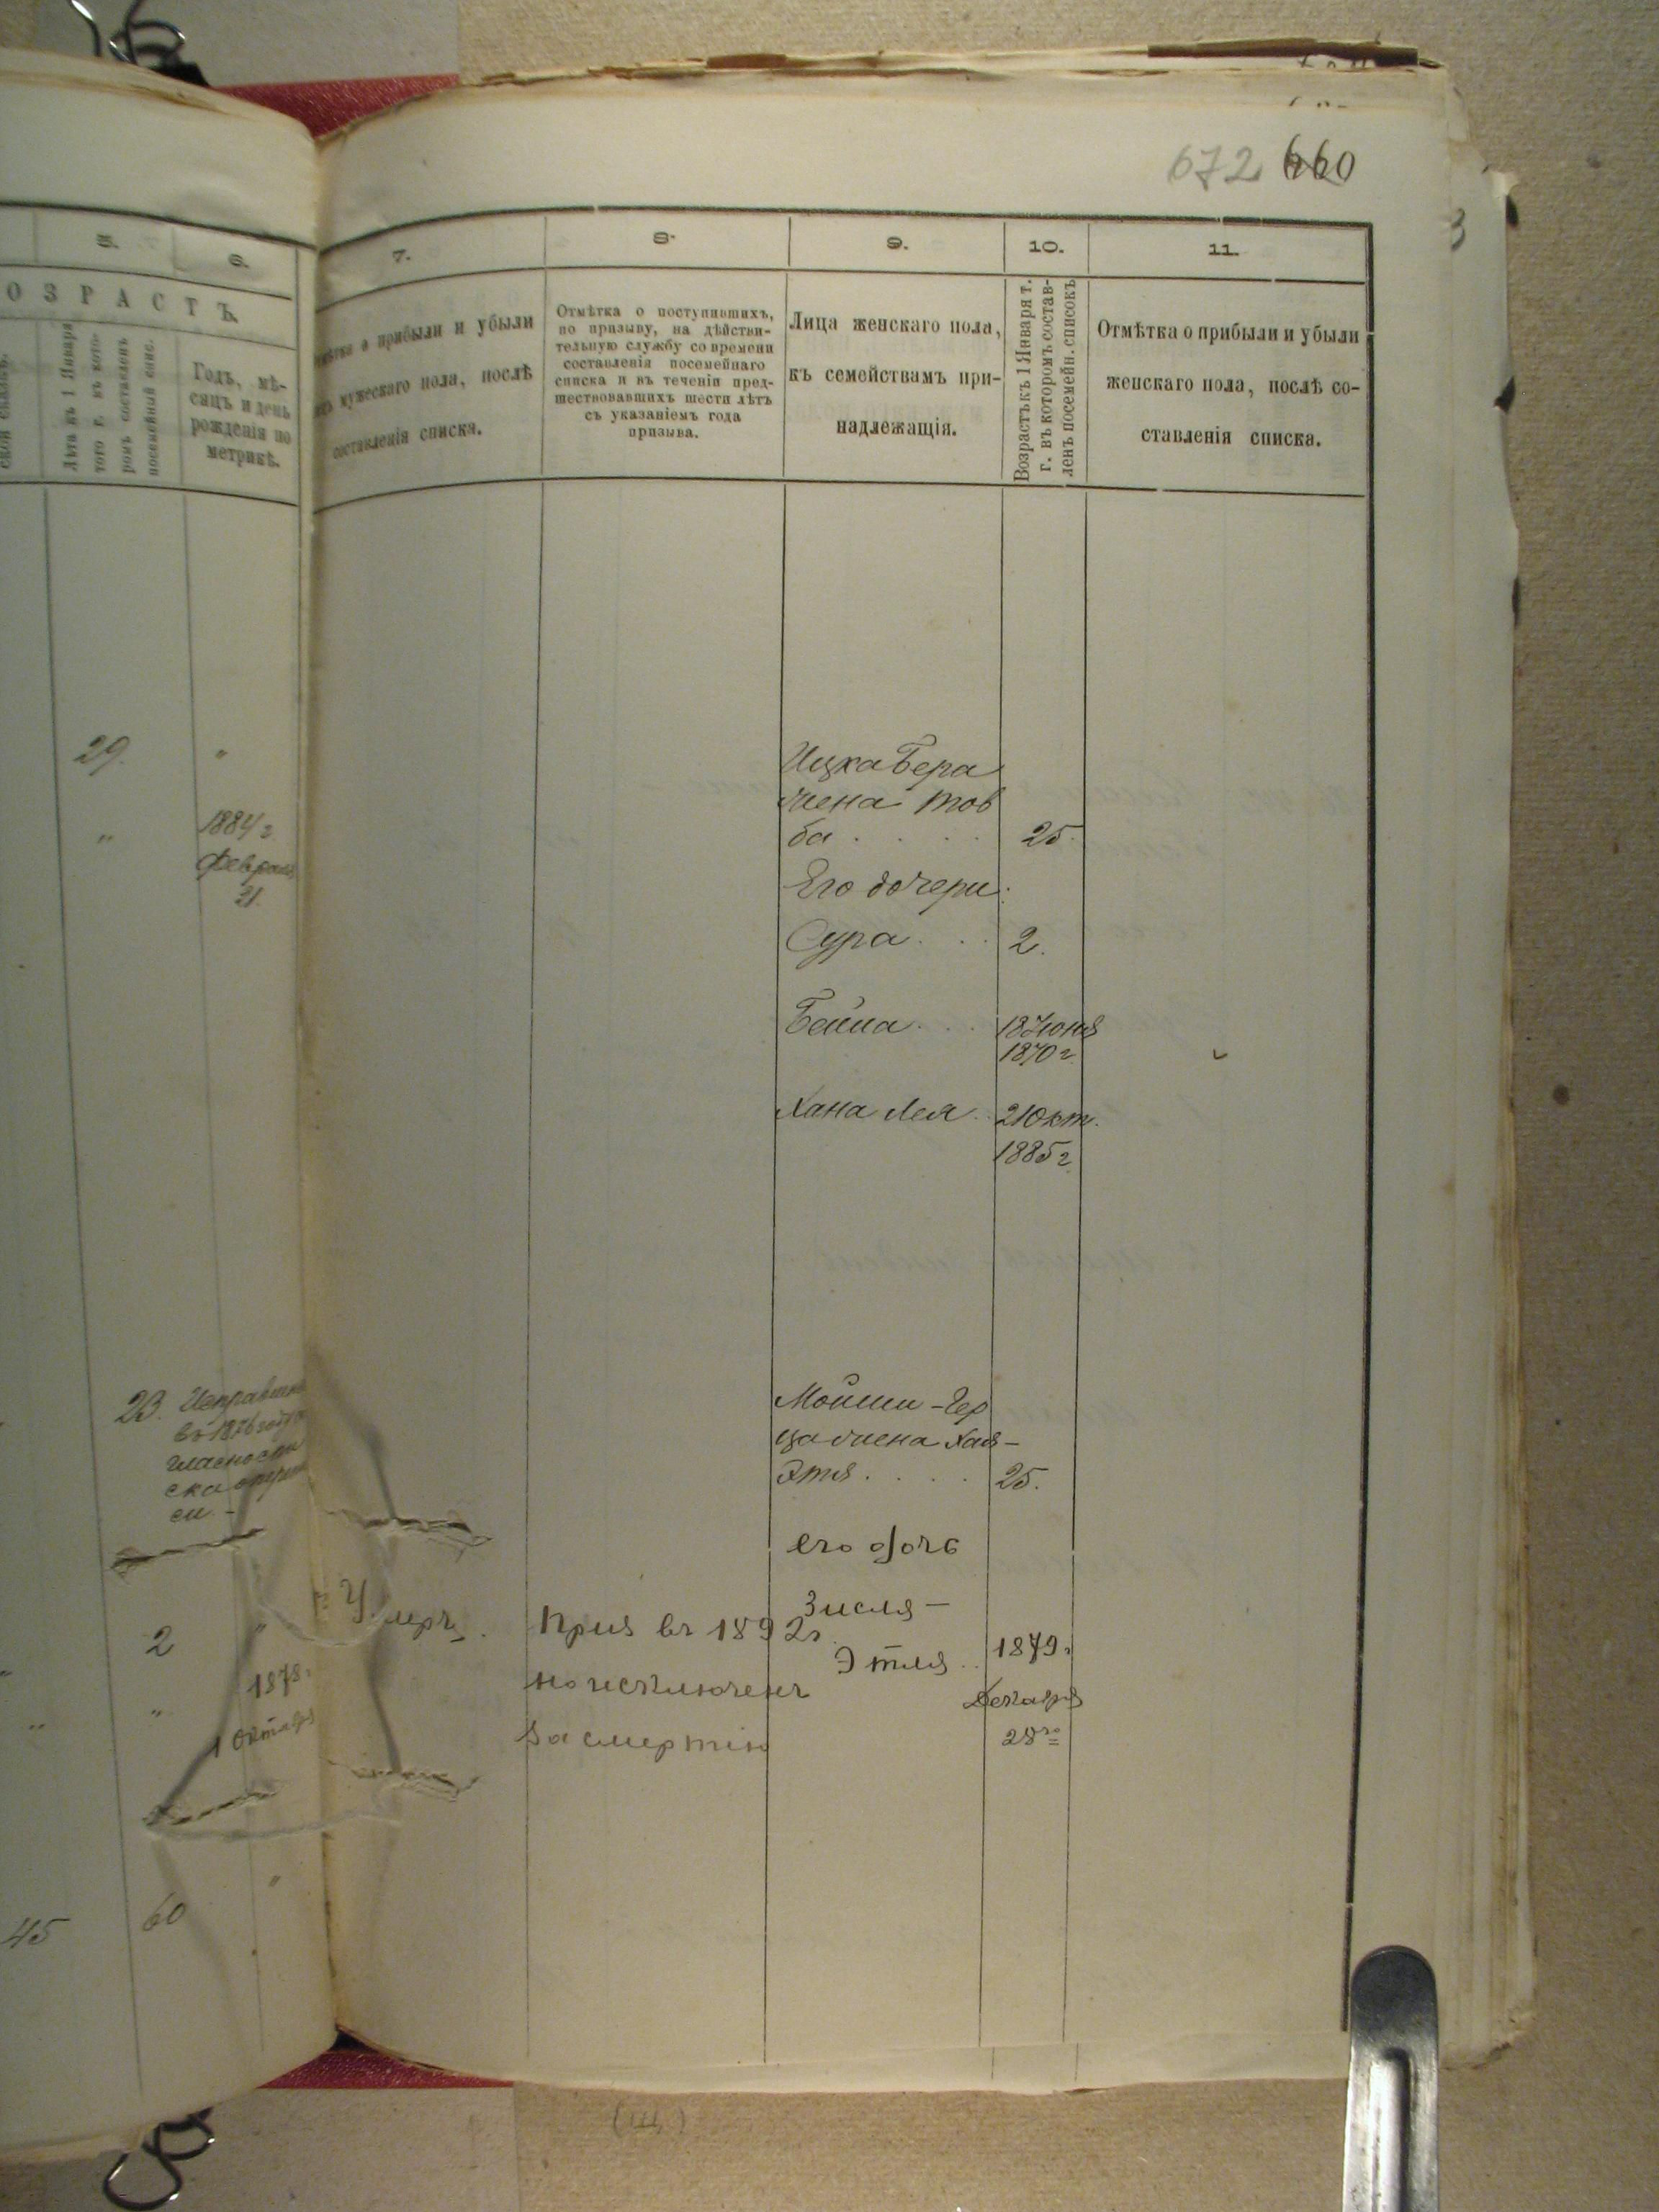 672 660
3
5.
6.
ОЗРАСТЪ.
Лѣта къ 1 Января
того г. въ кото-
ромъ составленъ
посемейный спис.
Годъ, мѣ-
сяцъ и день
рожденія по
метрикѣ.
7.
8.
9.
10.
11.
о прибыли и убыли
мужескаго пола, послѣ
составленія списка.
Отмѣтка о поступившихъ,
по призыву, на дѣйстви-
тельную службу со времени
составленія посемейнаго
списка и въ теченіи пред-
шествовавшихъ шести лѣтъ
съ указаніемъ года
призыва.
Лица женскаго пола,
къ семействамъ при-
надлежащія.
Возрастъ къ 1 Января т.
г. въ которомъ состав-
ленъ посемейн. списокъ
Отмѣтка о прибыли и убыли
женскаго пола, послѣ со-
ставленія списка.
29. "
" 1884 г.
Февраля
21.
Ицка Бера
жена Тов
ба . . . . 25.
Его дочери:
Сура . . . 2.
Бейла . . .
1870 г.
Хана Лея . . 21 Окт.
1885 г.
23.
Мойши-Гер
ца жена Хая-
Этя . . . . 25.
его дочь
Зисля-
Этля . . 1879 г.
Декабря
28го
2 " Умеръ.
" " 1878 г.
1 Октября
въ 1892 г.
но исключенъ
за смертію
45 60 "